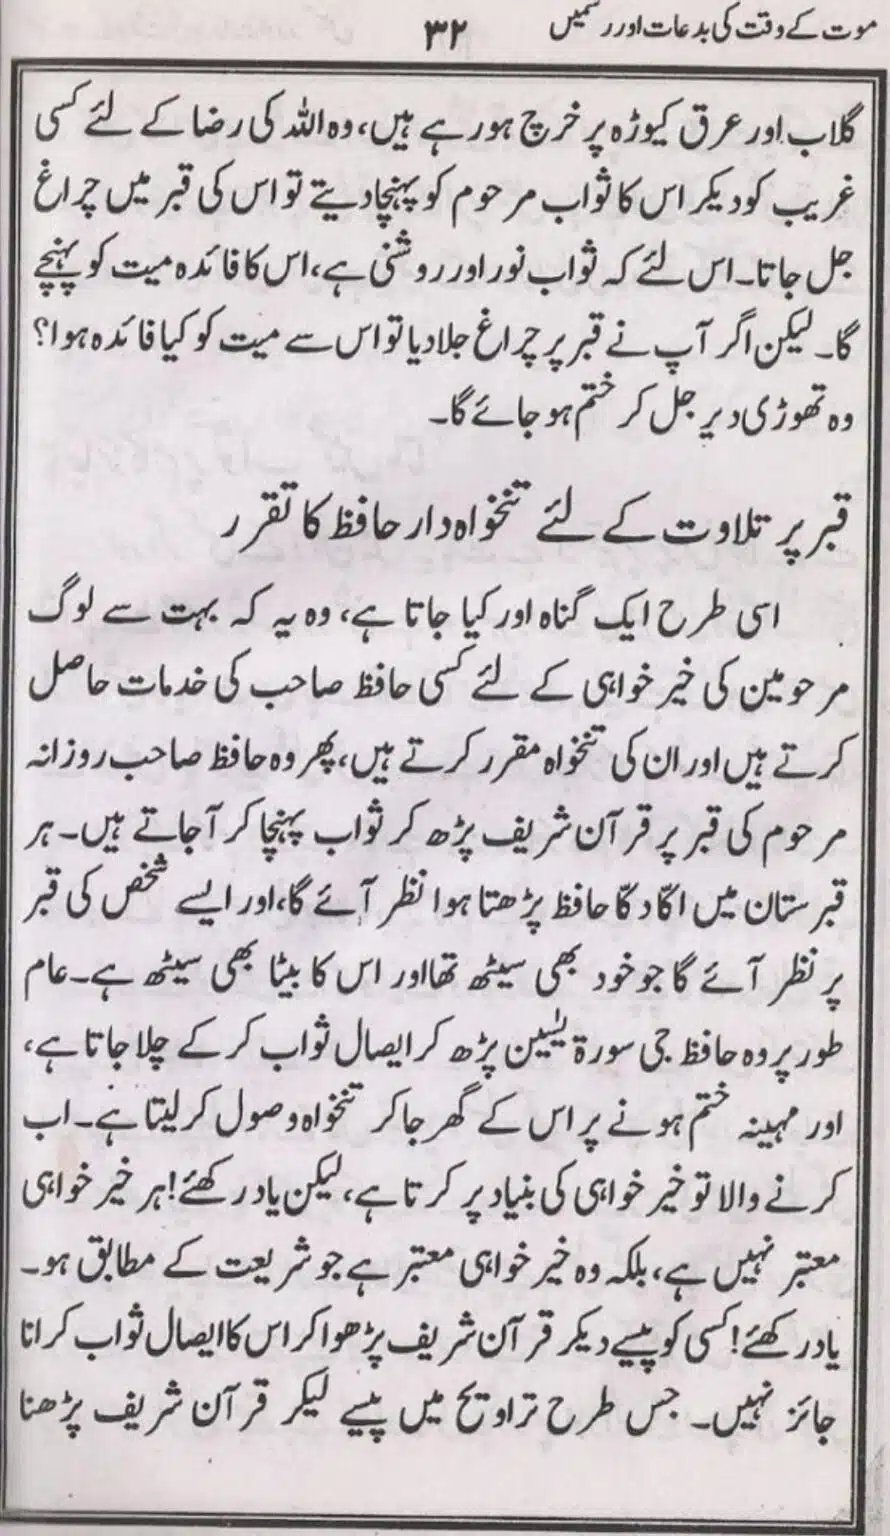 موت کے وقت کی بدعات اور رسمیں
۳۲
گلاب اور عرق کیوڑہ پر خرچ ہو رہے ہیں، وہ اللہ کی رضا کے لئے کسی
غریب کو دیکر اس کا ثواب مرحوم کو پہنچا دیتے تو اس کی قبر میں چراغ
جل جاتا۔ اس لئے کہ ثواب نور اور روشنی ہے، اس کا فائدہ میت کو پہنچے
گا۔ لیکن اگر آپ نے قبر پر چراغ جلا دیا تو اس سے میت کو کیا فائدہ ہوا؟
وہ تھوڑی دیر جل کر ختم ہو جائے گا۔
قبر پر تلاوت کے لئے تنخواہ دار حافظ کا تقرر
اسی طرح ایک گناہ اور کیا جاتا ہے، وہ یہ کہ بہت سے لوگ
مرحومین کی خیر خواہی کے لئے کسی حافظ صاحب کی خدمات حاصل
کرتے ہیں اور ان کی تنخواہ مقرر کرتے ہیں، پھر وہ حافظ صاحب روزانہ
مرحوم کی قبر پر قرآن شریف پڑھ کر ثواب پہنچا کر آجاتے ہیں۔ ہر
قبرستان میں اکّا دکّا حافظ پڑھتا ہوا نظر آئے گا، اور ایسے شخص کی قبر
پر نظر آئے گا جو خود بھی سیٹھ تھا اور اس کا بیٹا بھی سیٹھ ہے۔ عام
طور پر وہ حافظ جی سورۃ یٰسین پڑھ کر ایصال ثواب کر کے چلا جاتا ہے،
اور مہینہ ختم ہونے پر اس کے گھر جا کر تنخواہ وصول کر لیتا ہے۔ اب
کرنے والا تو خیر خواہی کی بنیاد پر کرتا ہے، لیکن یاد رکھئے! ہر خیر خواہی
معتبر نہیں ہے، بلکہ وہ خیر خواہی معتبر ہے جو شریعت کے مطابق ہو۔
یاد رکھئے! کسی کو پیسے دیکر قرآن شریف پڑھوا کر اس کا ایصال ثواب کرانا
جائز نہیں۔ جس طرح تراویح میں پیسے لیکر قرآن شریف پڑھنا